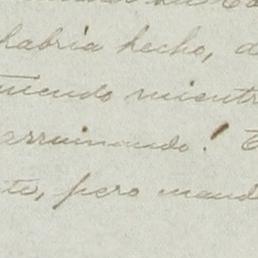 habría hecho, d
mientr
arruinando! E
te, pero mand